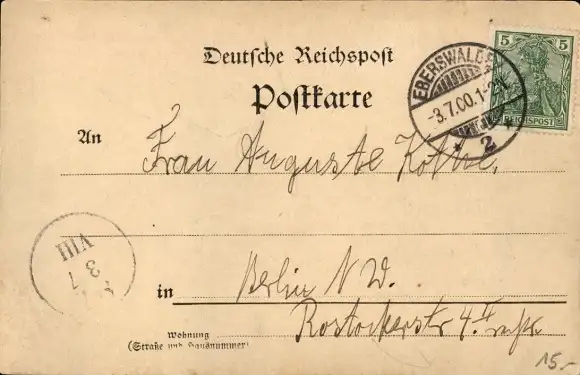 Deutsche Reichspost
Postkarte
EBERSWALDE
-3.7.00.1-2N.
* 2 *
5 5
REICHSPOST
An Frau Auguste Kothe.
VIII
3 7
in Berlin N W.
Rostockerstr 4. II
Wohnung
(Straße und Hausnummer)
15.-